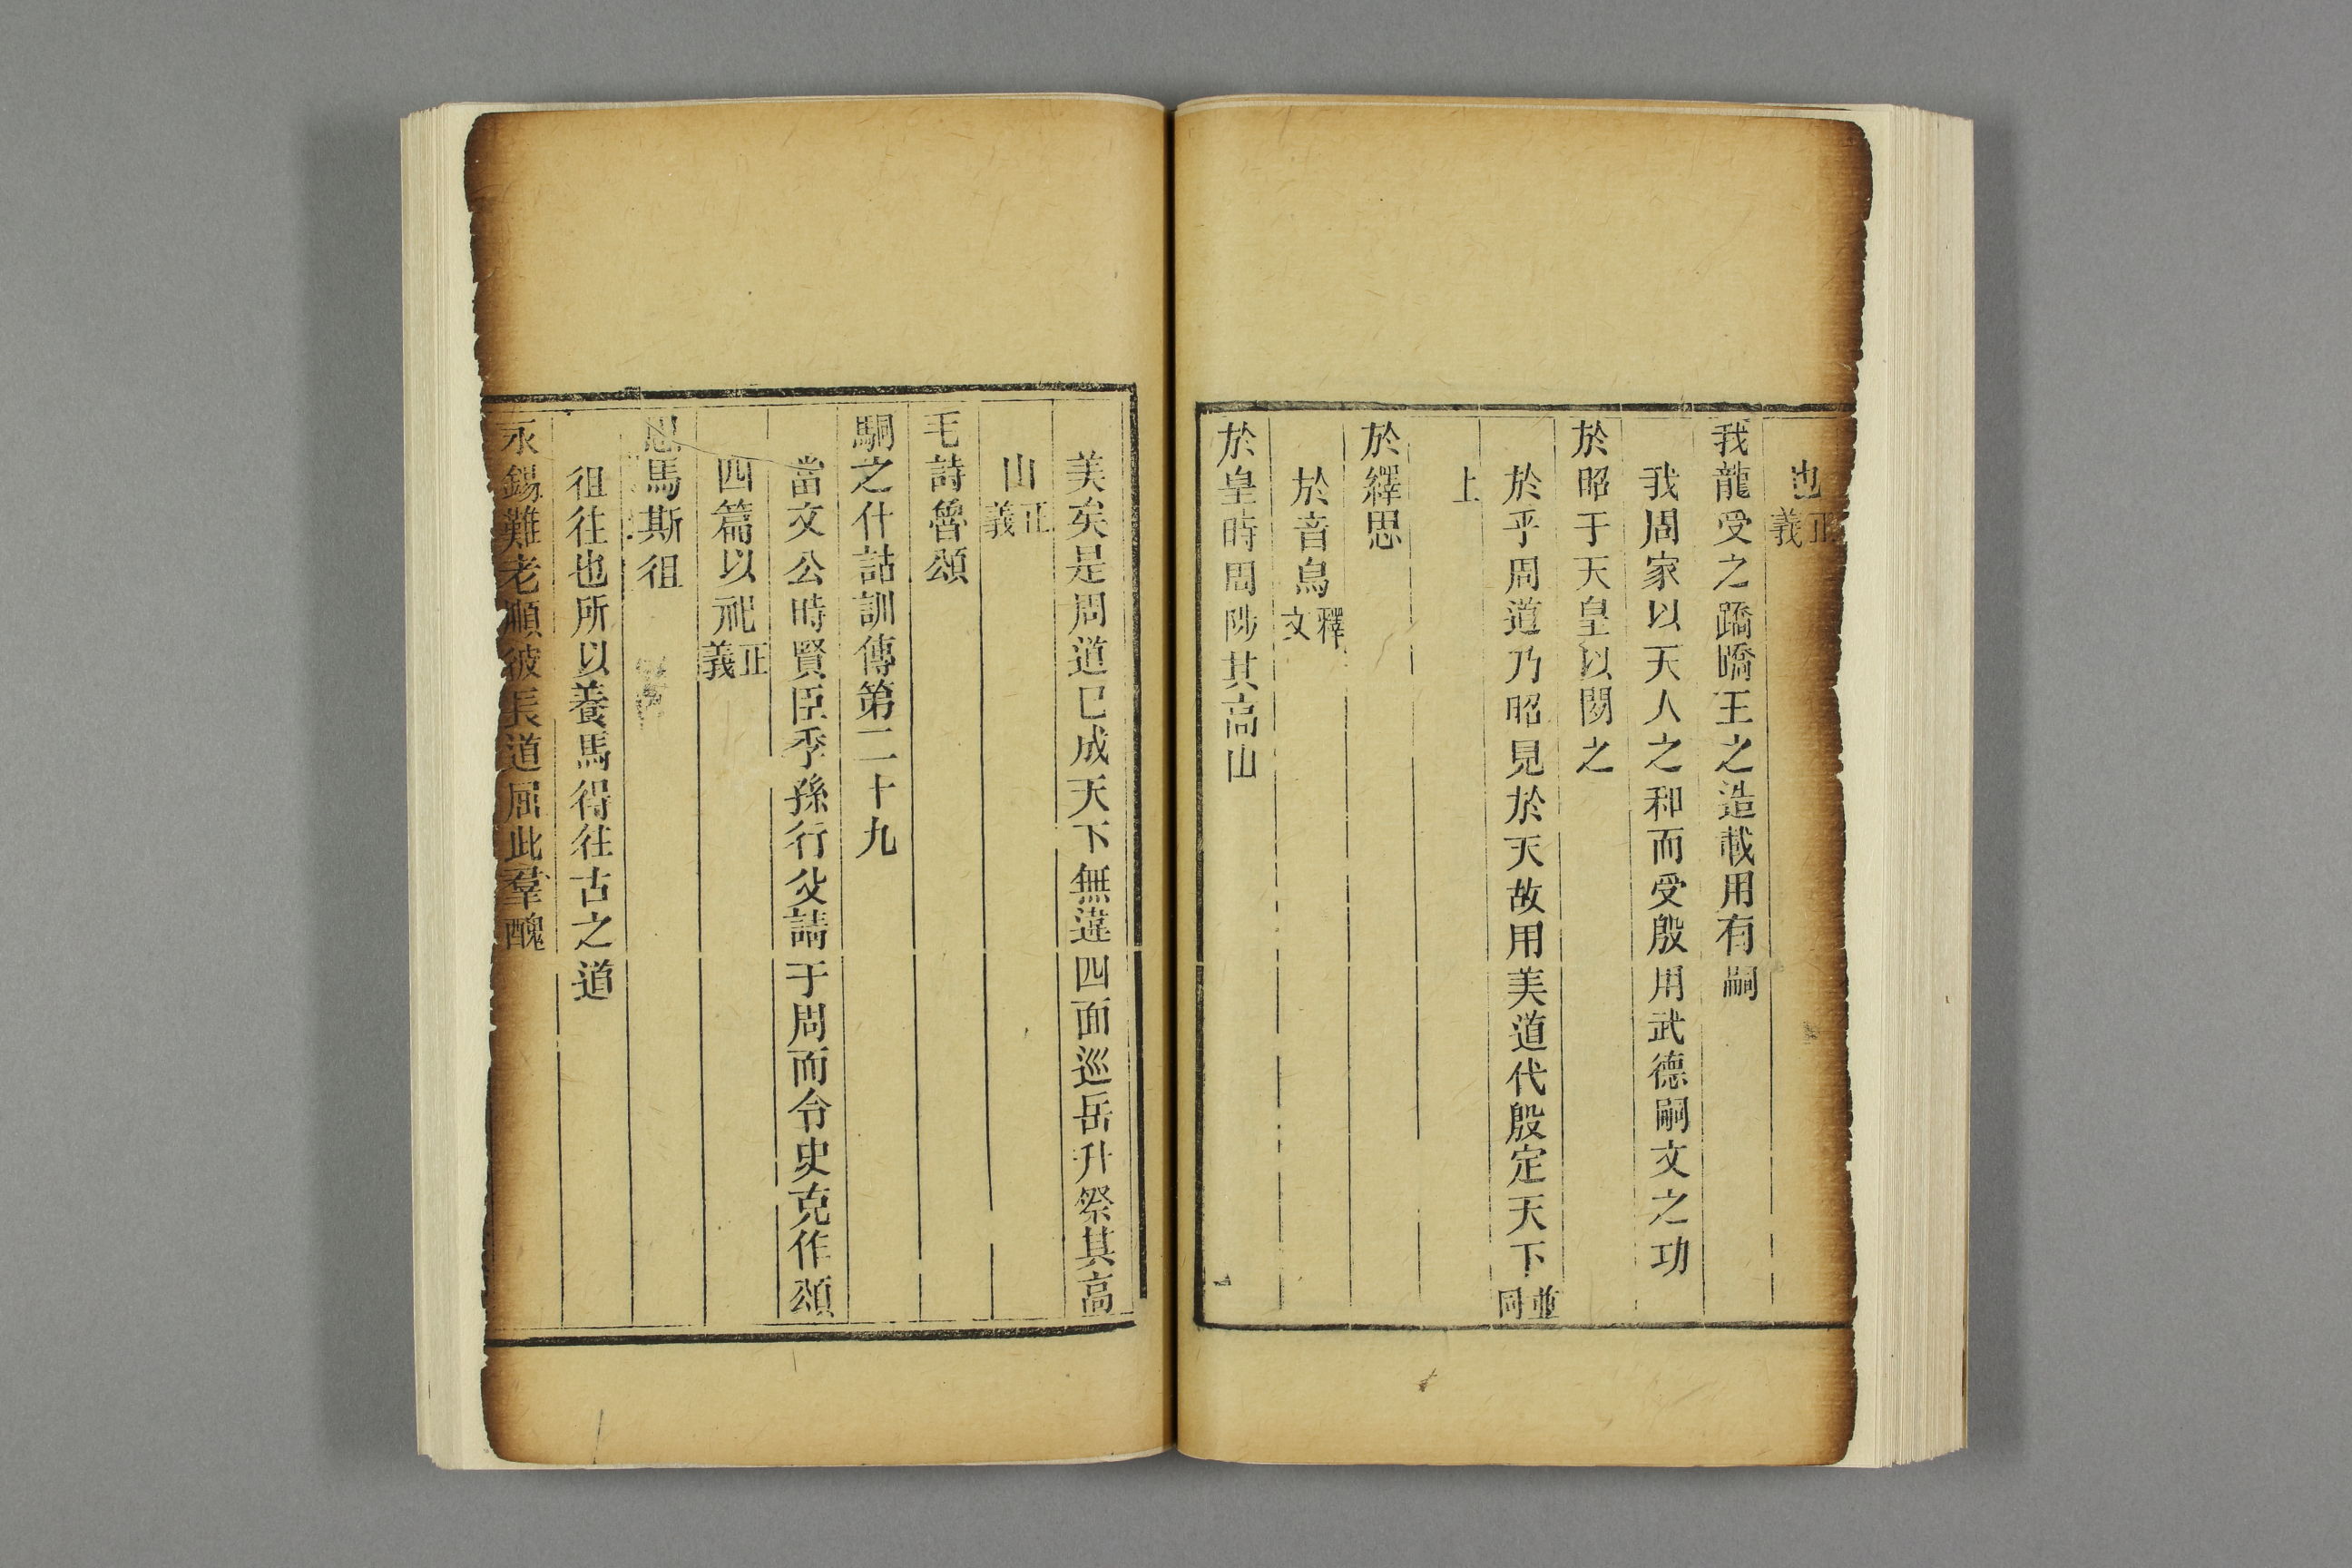 也正義
我龍受之蹻蹻王之造載用有嗣
我周家以天人之和而受殷用武德嗣文之功
於昭于天皇以閒之
於乎周道乃昭見於天故用美道代殷定天下並同
上
於繹思
於音烏釋文
於皇時周陟其高山
美矣是周道已成天下無違四面巡岳升祭其高
山正義
毛詩魯頌
駉之什詁訓傳第二十九
當文公時賢臣季孫行父請于周而令史克作頌
四篇以祀正義
思馬斯徂
徂往也所以養馬得往古之道
永錫難老順彼長道屈此羣醜